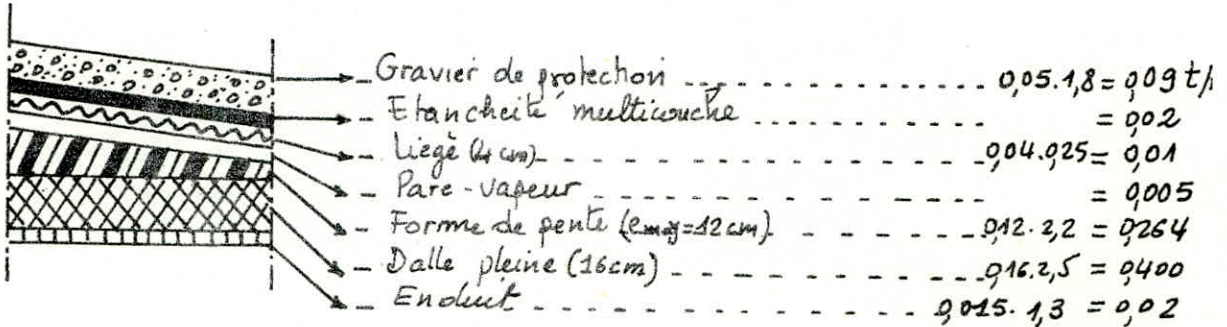 - Gravier de protection ---------- 0,05.1,8 = 0,09 t/
- Etancheité multicouche ---------- = 0,02
- Liège (4 cm) ---------- 0,04.0,25 = 0,01
- Pare-vapeur ---------- = 0,005
- Forme de pente (emoy=12cm) ---------- 0,12.2,2 = 0,264
- Dalle pleine (16cm) ---------- 0,16.2,5 = 0,400
- Enduit ---------- 0,015.1,3 = 0,02